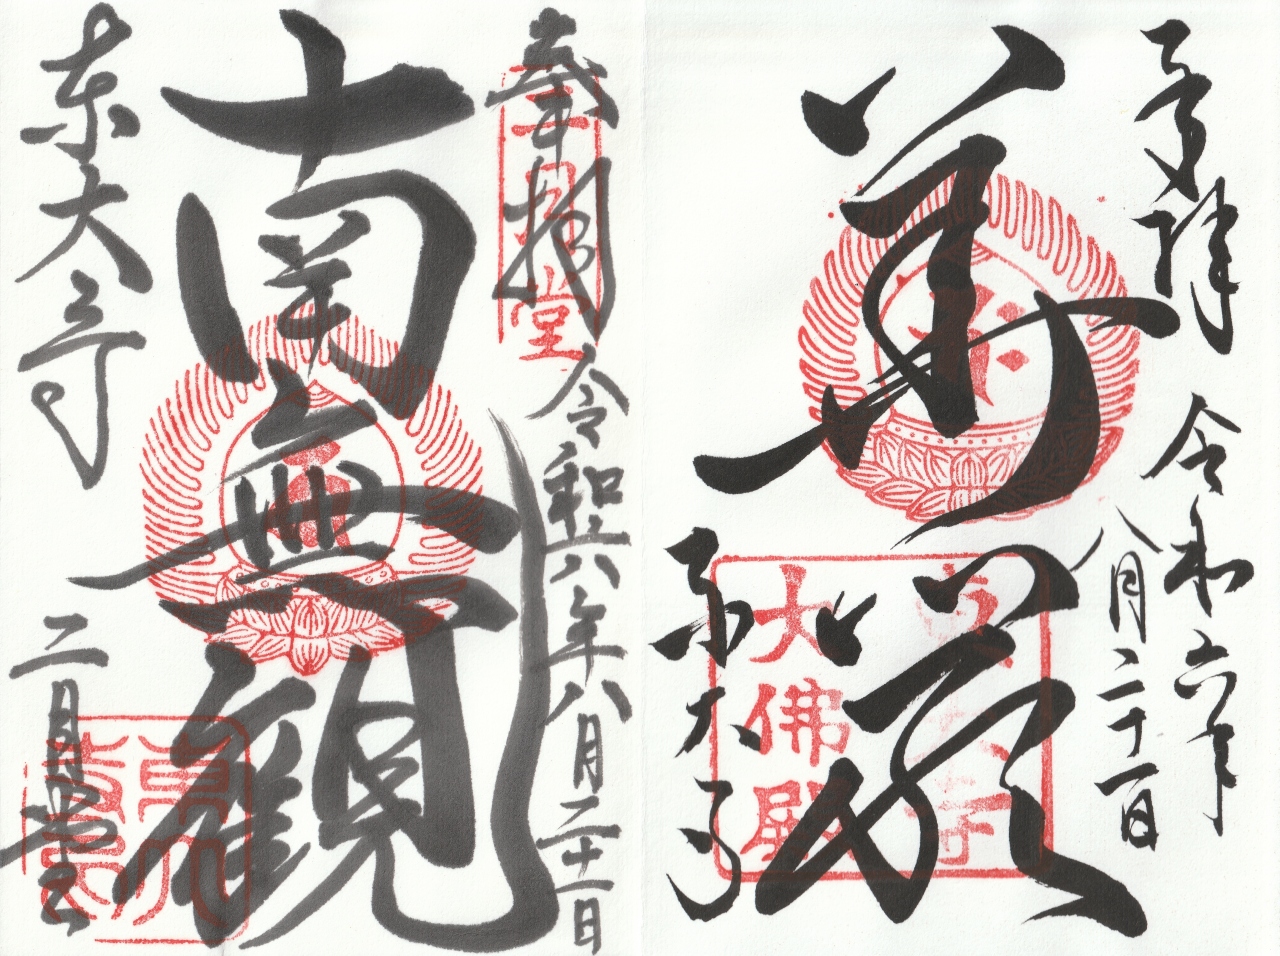 奉拝
令和六年
八月二十一日
華厳
東大寺
大佛殿
奉拝
二月堂
令和六年八月二十一日
南無観
東大寺
二月堂